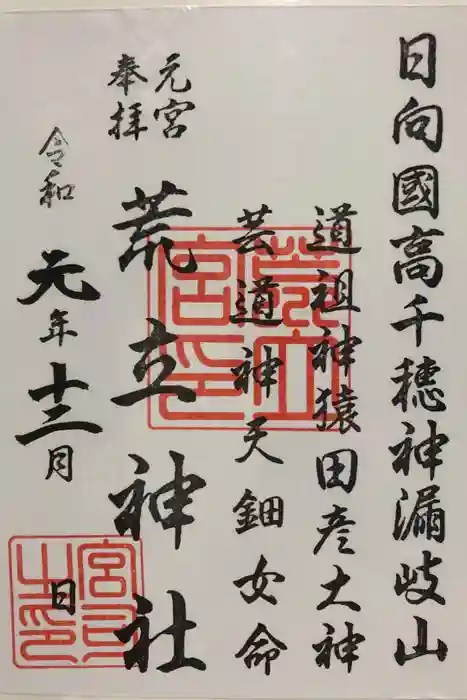 日向國高千穂神漏岐山
道祖神猿田彦大神
芸道神天鈿女命
元宮
奉拝
荒立神社
令和元年十二月 日
荒立宮印
宮司之印